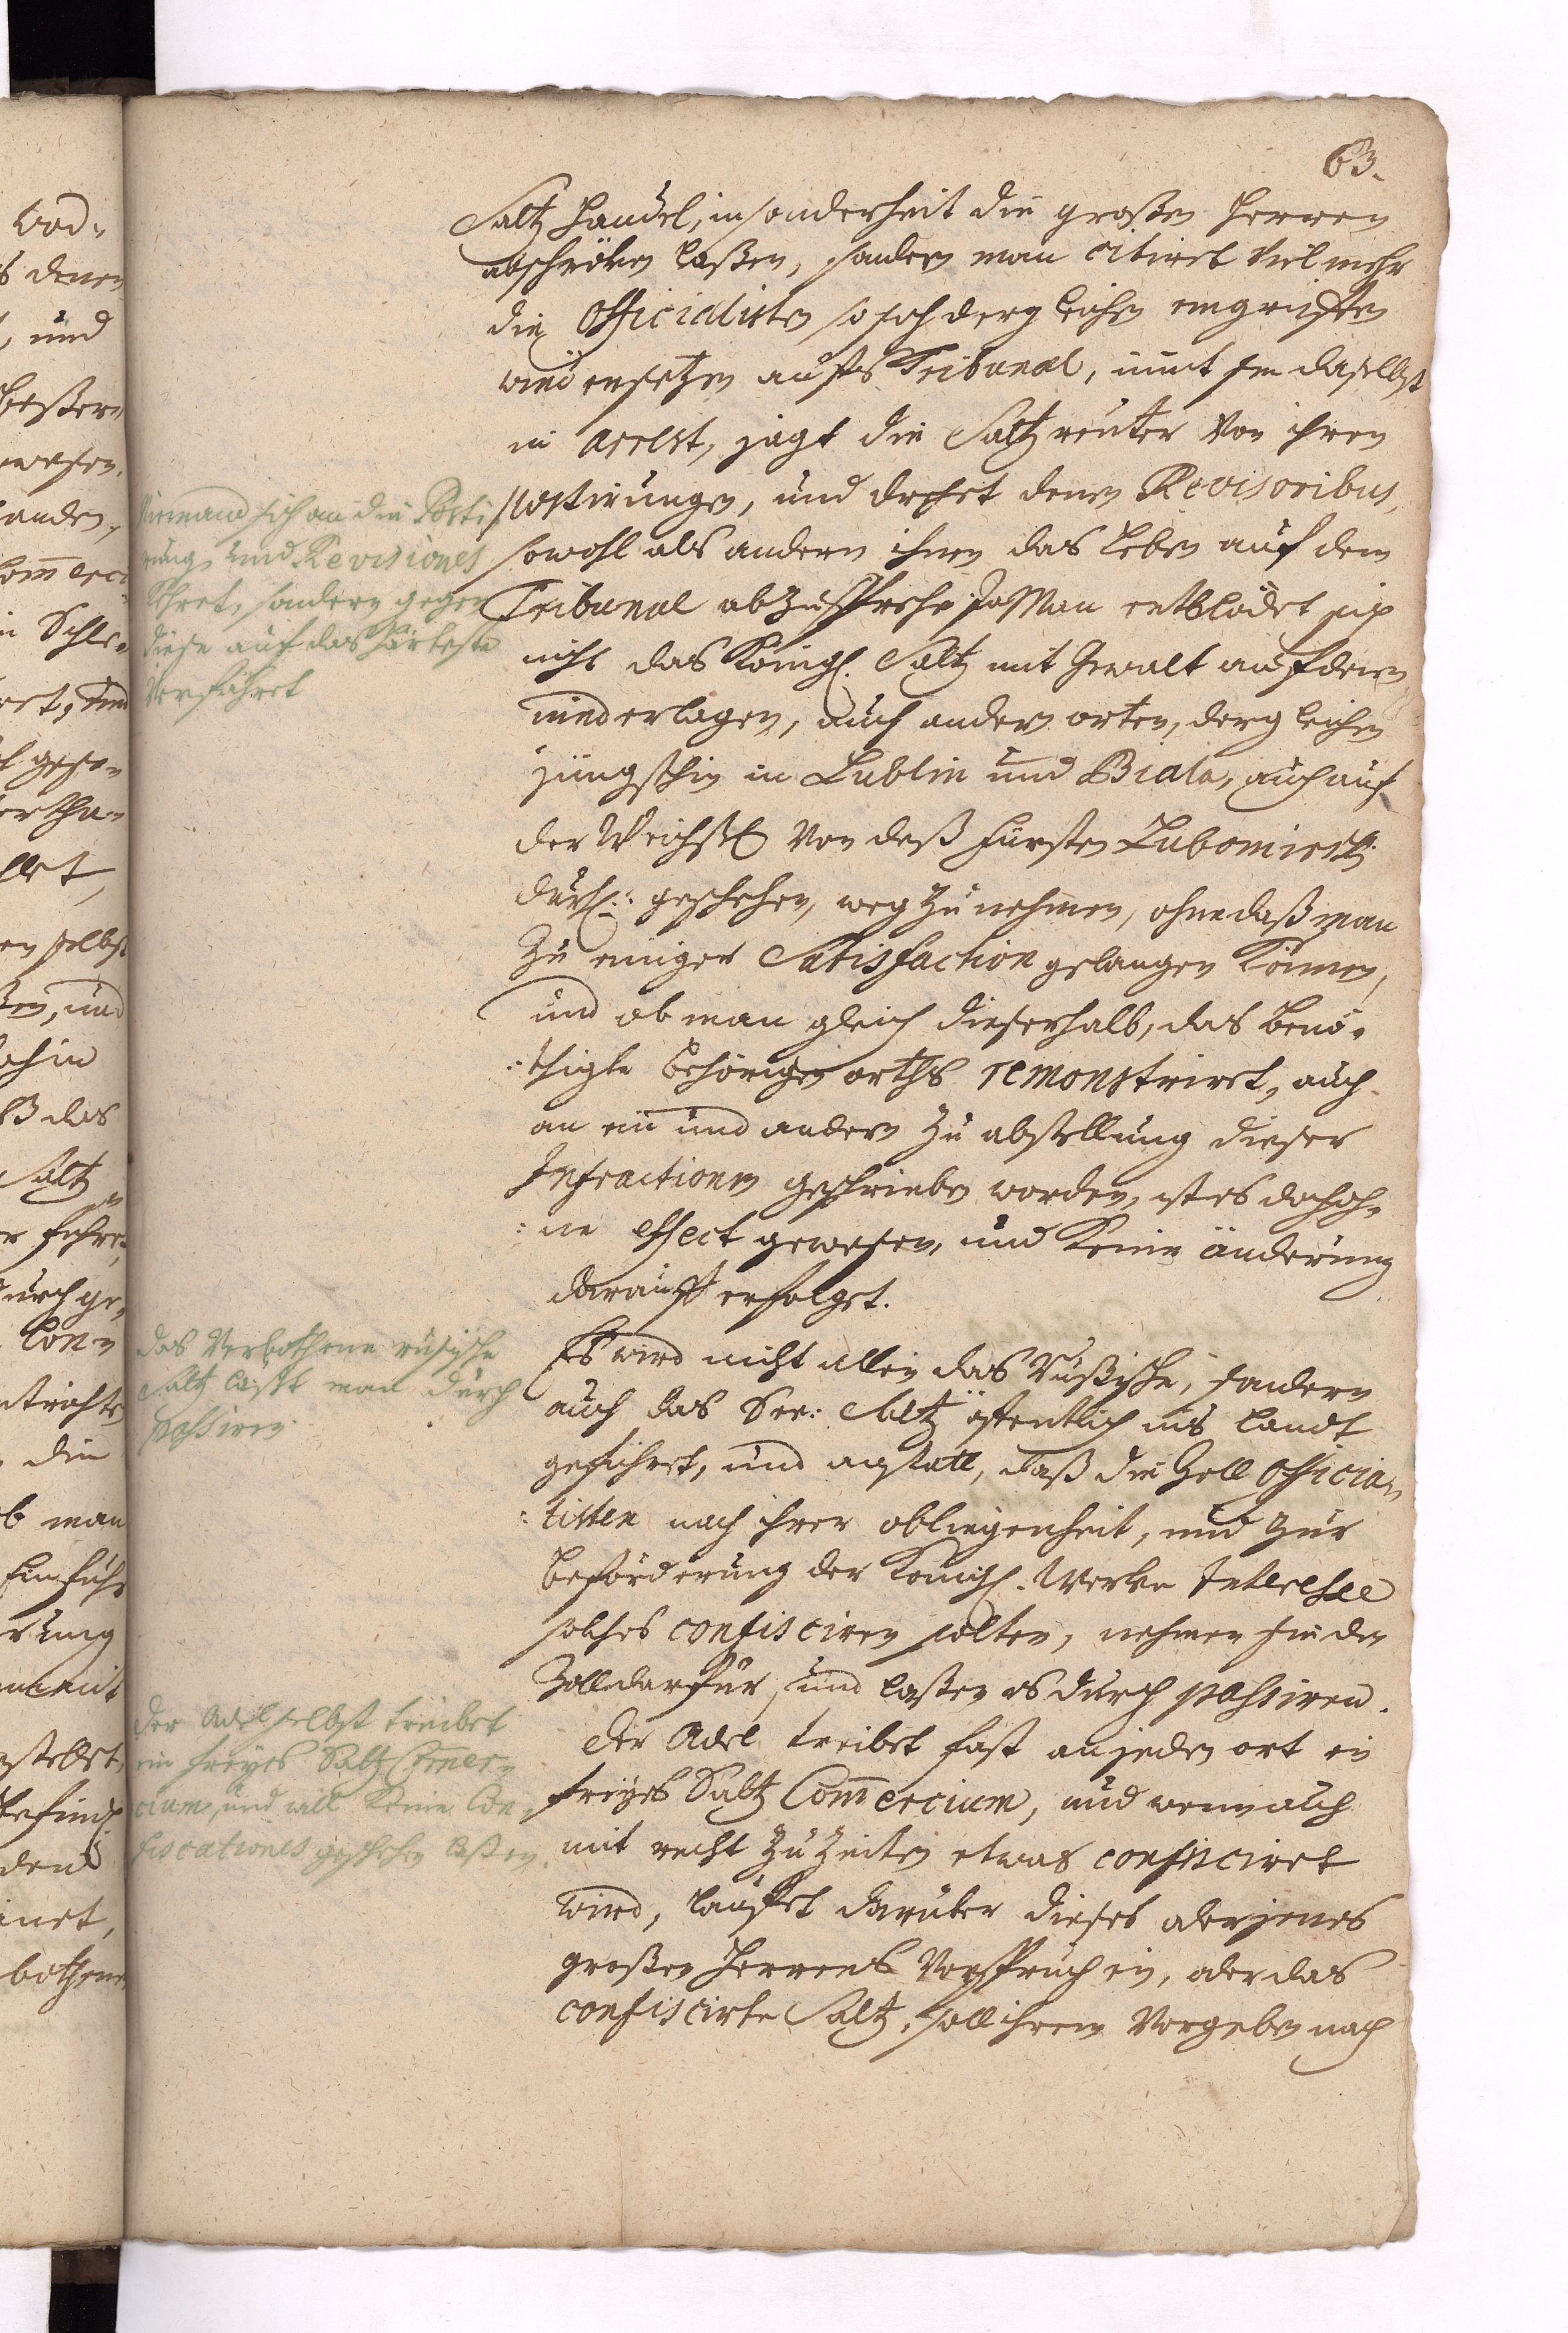 63.
Saltz Handel, insonderheit die großen Herren
abschröken laßen, sondern man citiret Vielmehr
die Officialisten so sich dergleichen eingriffen
wiedersetzen aufs Tribunal, nimt sie daselbst
in arrest, jagt die Saltz reuter Von ihren
postirungen, und drohet denen Revisoribus,
sowohl als andern ihnen das Leben auf dem
Tribunal abzusprechen Ja Man entblödet sich
nicht das Königl. Saltz mit Gewalt auf denen
niederlagen, auch andern orten, dergleichen
jüngsthin in Lublin und Biala, auch auf
der Weichsel Von deß Fürsten Lubomirsky
durchl: geschehen, weg zu nehmen, ohne daß man
Zu einiger Satisfaction gelangen können,
und ob man gleich dieserhalb, das Benö-
:thigte behörigen orths remonstriret, auch
an ein und andern zu abstellung dieser
Infractionen geschrieben worden, ist es doch oh-
:ne effect gewesen, und keine änderung
darauff erfolget.
Es wird nicht allein das Rußische, sondern
auch das See: Saltz öffentlich ins Landt
geführet, und anstatt, daß die Zoll Officia-
:listen nach ihrer obliegenheit, und zur
beförderung der Königl. Werke Interesse
solches confisciren solten, nehmen sie den
Zoll darfür, und laßen es durch passiren.
Der Adel treibet fast an jeden ort ein
freyes Saltz Commercium, und wenn auch
mit recht zu Zeiten etwas confisciret
wird, lauffet darüber dieses oder jenes
großen Herrens Vorspruch ein, oder das
confiscirte Saltz, soll ihrem Vorgeben nach
Niemand sich an die Posti
rung und Revisiones
kehret, sondern gegen
diese auf das härteste
Verfähret
das Verbothene rußische
Saltz läßt man durch
passiren
Der Adel selbst treibet
ein freyes Saltz Commer-
cium, und will keine Con-
fiscationes geschehen laßen